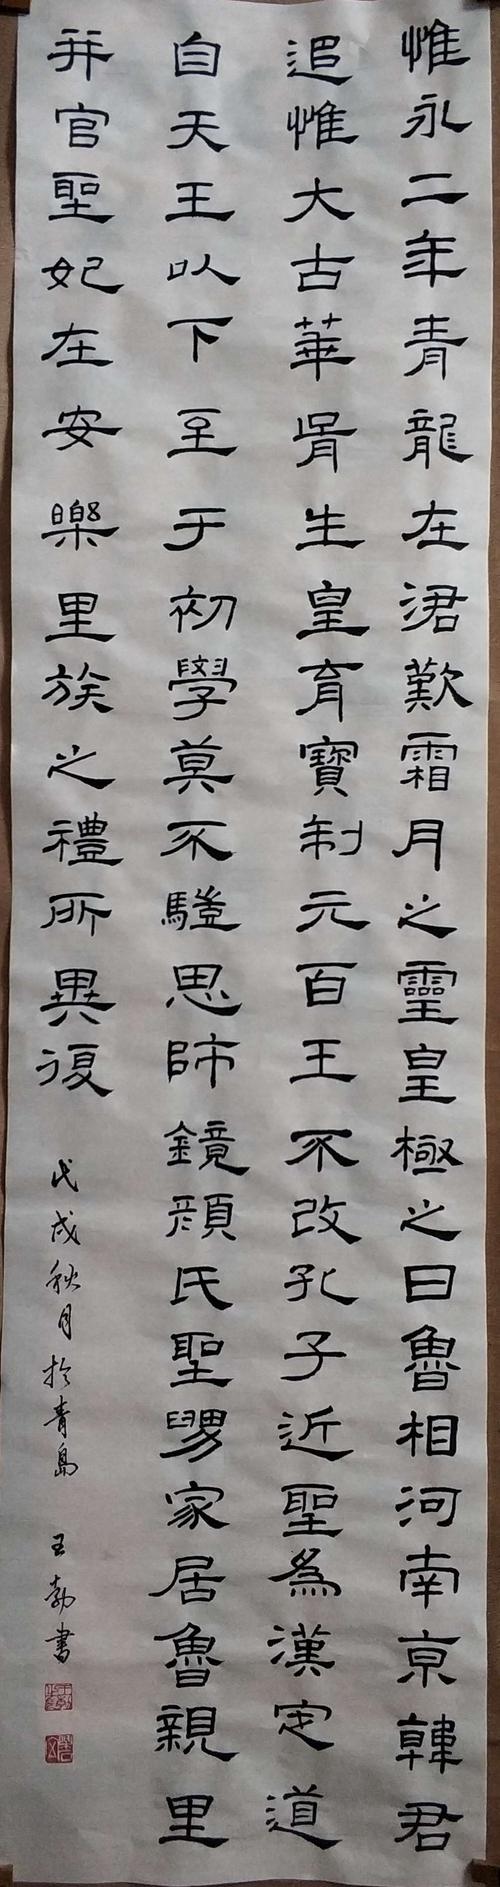 惟永二年青龍在涒歎霜月之靈皇極之日魯相河南京韓君
追惟大古華胥生皇育寶制元百王不改孔子近聖為漢定道
自天王以下至于初學莫不驥思師鏡顏氏聖舅家居魯親里
并官聖妃在安樂里族之禮所異復
戊戌秋月於青島 王勃書